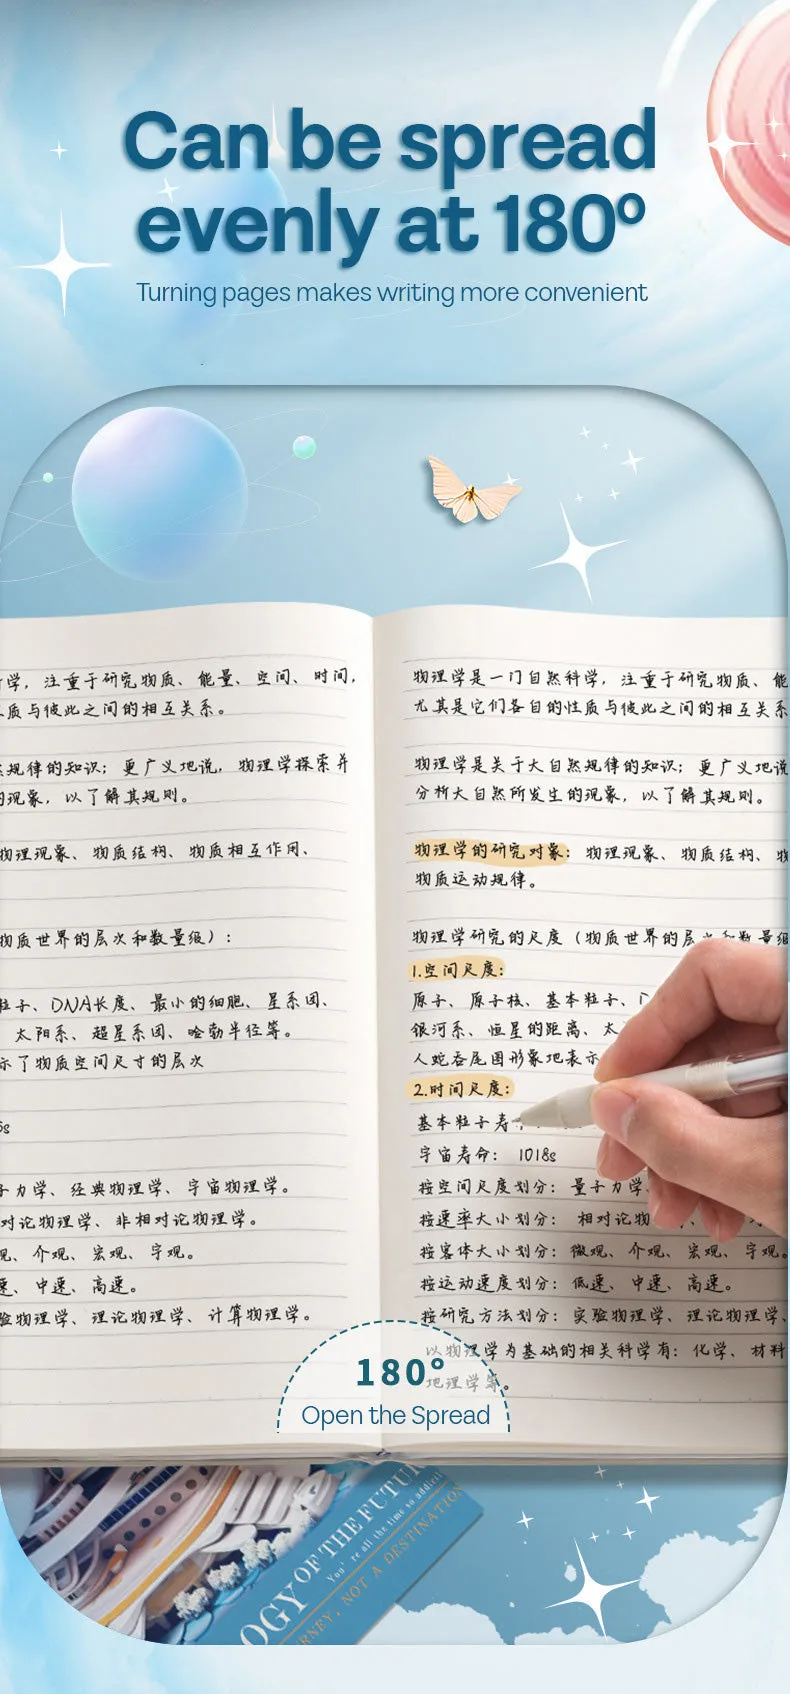 Can be spread
evenly at 180°
Turning pages makes writing more convenient
学，注重于研究物质、能量、空间、时间，
质与彼此之间的相互关系。
规律的知识；更广义地说，物理学探索并
现象，以了解其规则。
物理现象、物质结构、物质相互作用、
物质世界的层次和数量级）：
粒子、DNA长度、最小的细胞、星系团、
太阳系、超星系团、哈勃半径等。
示了物质空间尺寸的层次
s
力学、经典物理学、宇宙物理学。
对论物理学、非相对论物理学。
观、介观、宏观、宇观。
速、中速、高速。
验物理学、理论物理学、计算物理学。
物理学是一门自然科学，注重于研究物质、能
尤其是它们各自的性质与彼此之间的相互关系
物理学是关于大自然规律的知识；更广义地说
分析大自然所发生的现象，以了解其规则。
物理学的研究对象：物理现象、物质结构、物
物质运动规律。
物理学研究的尺度（物质世界的层次和数量级
1.空间尺度：
原子、原子核、基本粒子、
银河系、恒星的距离、太
人蛇吞尾图形象地表示
2.时间尺度：
基本粒子寿
宇宙寿命： 1018s
按空间尺度划分：量子力学、
按速率大小划分： 相对论物
按客体大小划分：微观、介观、宏观、宇观。
按运动速度划分：低速、中速、高速。
按研究方法划分：实验物理学、理论物理学、
以物理学为基础的相关科学有：化学、材料
地理学等。
180°
Open the Spread
OGY OF THE FUTUR
You're all the time so addict
RNEY, NOT A DESTINATION